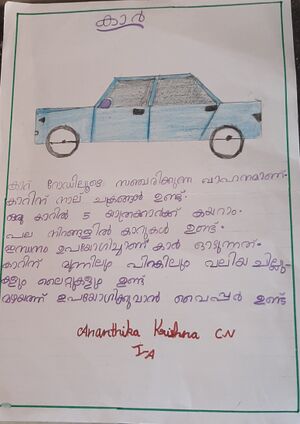 കാർ
കാർ റോഡിലൂടെ സഞ്ചരിക്കുന്ന വാഹനമാണ്.
കാറിന് നാല് ചക്രങ്ങൾ ഉണ്ട്.
ഒരു കാറിൽ 5 യാത്രക്കാർക്ക് കയറാം.
പല നിറങ്ങളിൽ കാറുകൾ ഉണ്ട്.
ഇന്ധനം ഉപയോഗിച്ചാണ് കാർ ഓടുന്നത്.
കാറിന് മുന്നിലും പിന്നിലും വലിയ ചില്ലു-
കളും ലൈറ്റുകളും ഉണ്ട്
മഴയത്ത് ഉപയോഗിക്കുവാൻ വൈപ്പർ ഉണ്ട്
Ananthika Krishna C.N
I A